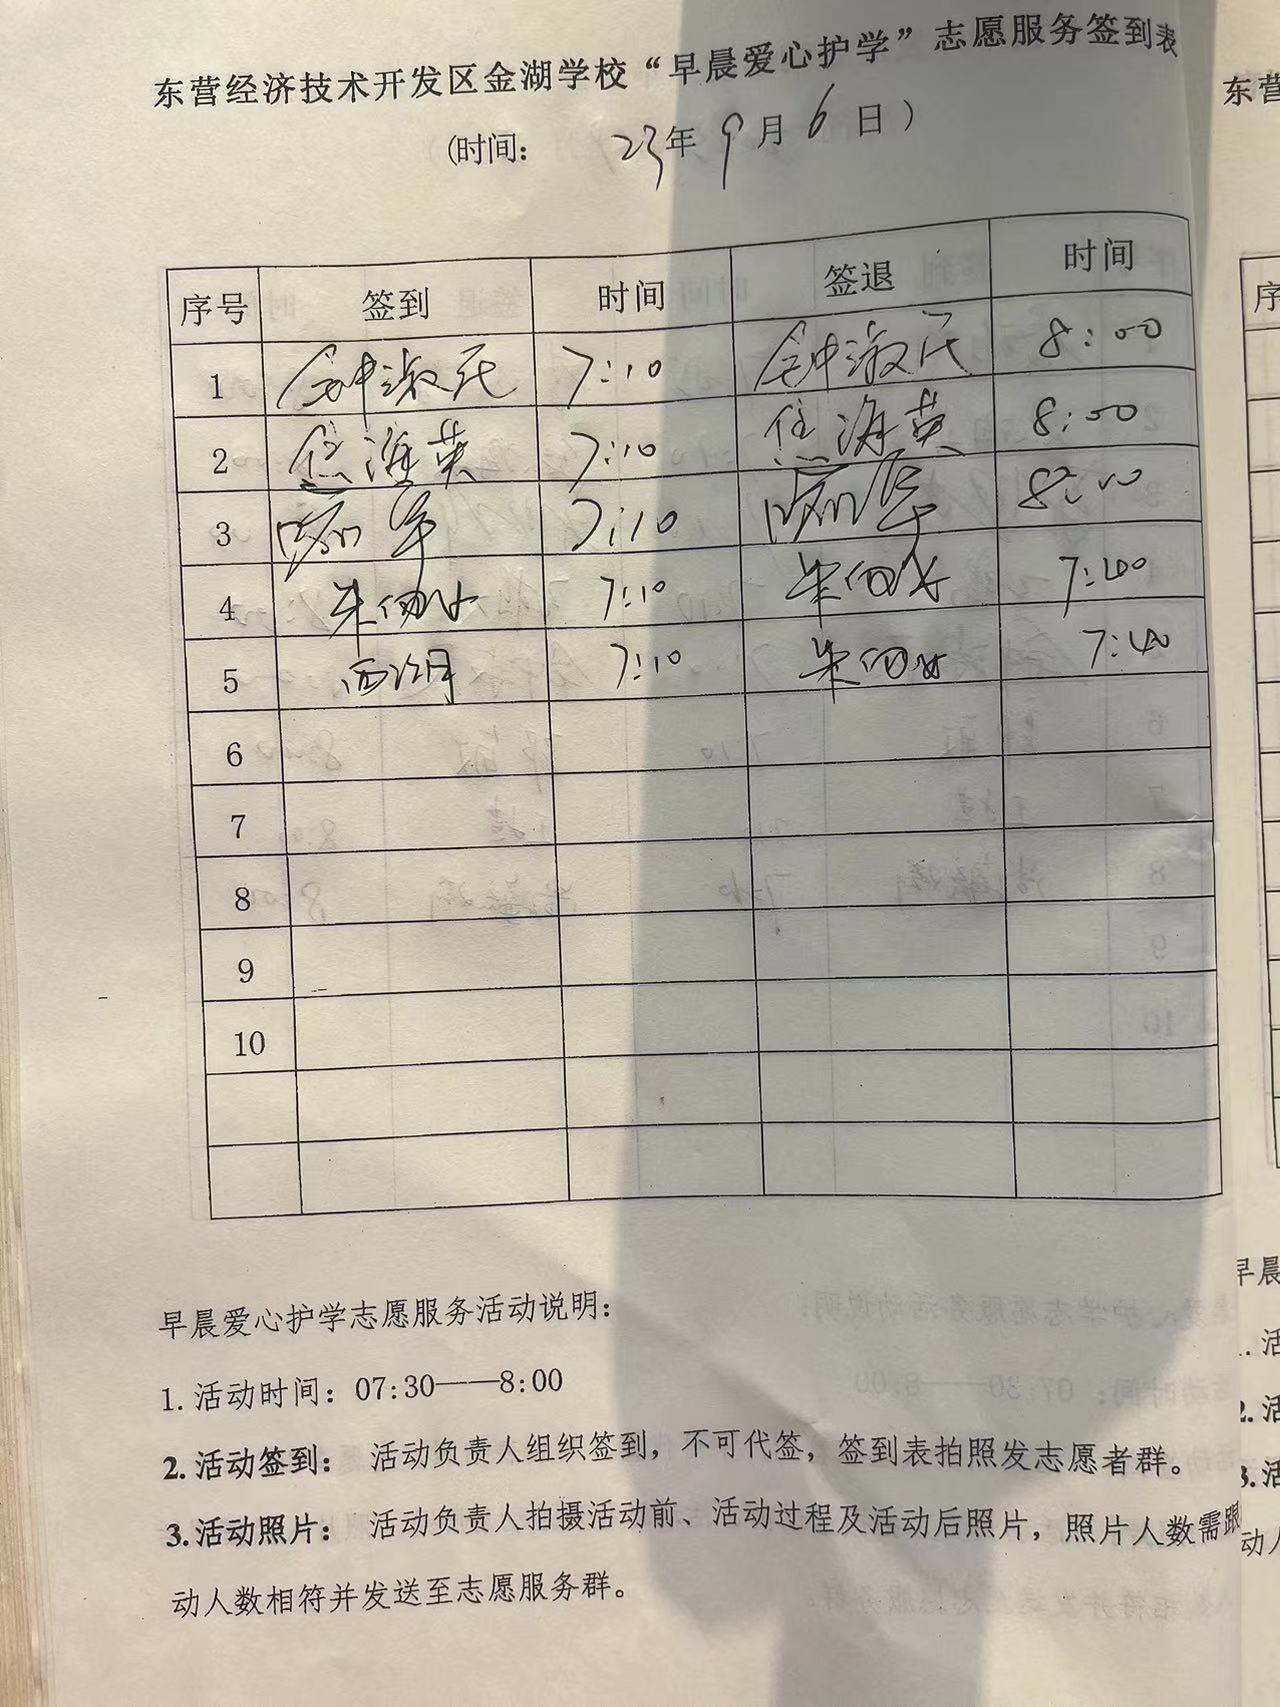 东营经济技术开发区金湖学校“早晨爱心护学”志愿服务签到表
(时间: 23年9月6日)
序号 签到 时间 签退 时间
1 钟淑民 7:10 钟淑民 8:00
2 海英 7:10 海英 8:00
3 军 7:10 军 8:00
4 朱 7:10 朱 7:40
5 7:10 朱 7:40
6
7
8
9
10
早晨爱心护学志愿服务活动说明:
1. 活动时间: 07:30——8:00
2. 活动签到: 活动负责人组织签到, 不可代签, 签到表拍照发志愿者群。
3. 活动照片: 活动负责人拍摄活动前、活动过程及活动后照片, 照片人数需跟
动人数相符并发送至志愿服务群。
东营
序
早晨
. 活
2. 活
3. 活
动人